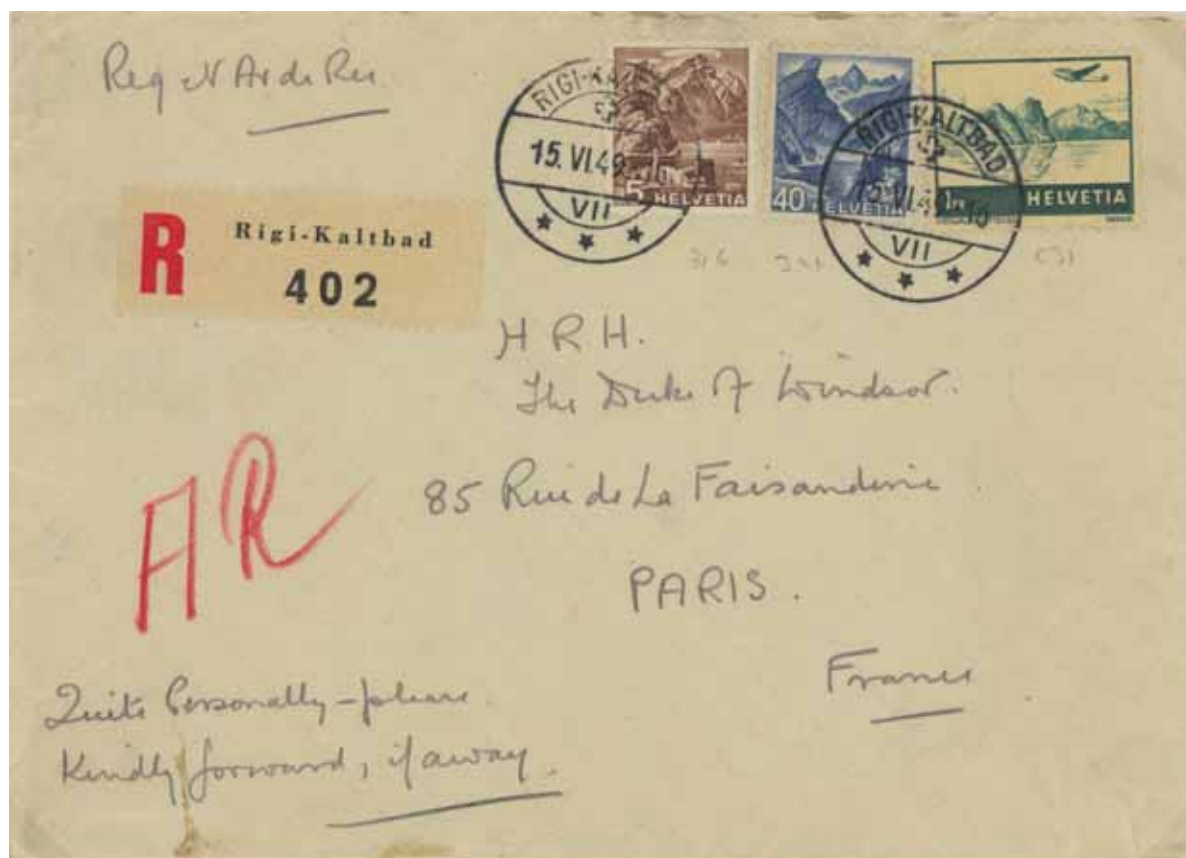 Reg et Av de Rec
RIGI-KALTBAD
15. VI. 49
VII
5 HELVETIA
40 HELVETIA
RIGI-KALTBAD
15. VI. 49 -10
VII
1 Fr HELVETIA
R Rigi-Kaltbad
402
316
H R H.
The Duke of Windsor.
85 Rue de La Faisanderie
AR
PARIS.
France
Quite Personally - please
Kindly forward, if away.